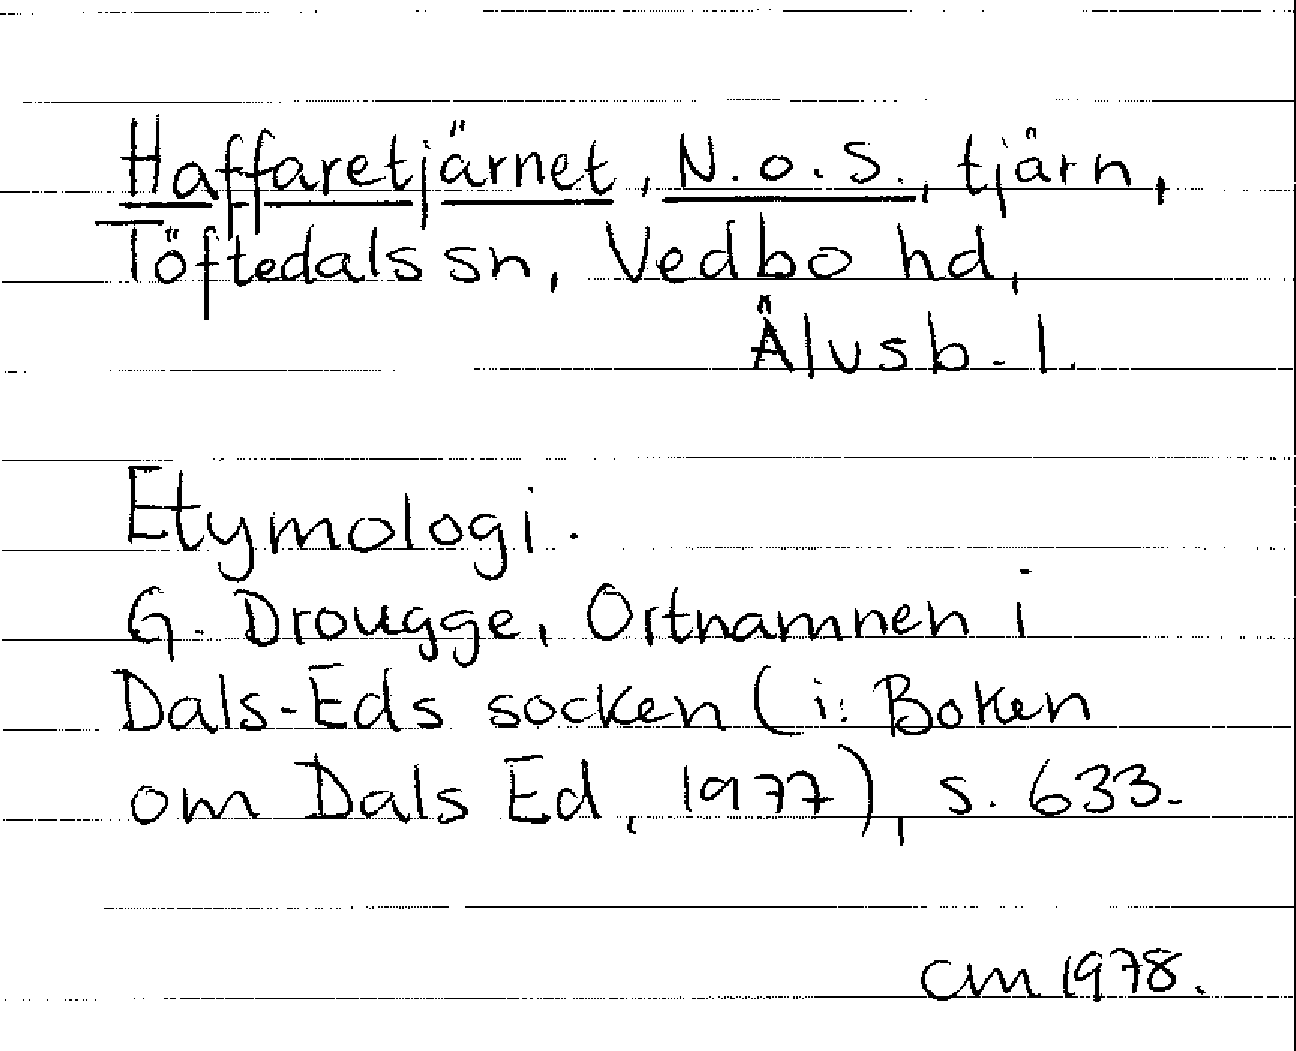 Haffaretjärnet, N.o.S., tjärn,
Töftedals sn, Vedbo hd,
Älvsb. l.
Etymologi.
G. Drougge, Ortnamnen i
Dals-Eds socken (i: Boken
om Dals Ed, 1977), s. 633.
CM 1978.